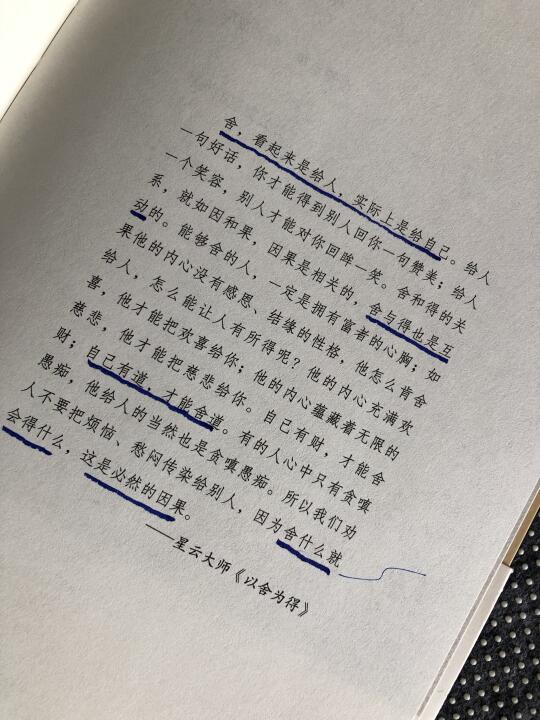 舍，看起来是给人，实际上是给自己。给人
一句好话，你才能得到别人回你一句赞美；给人
一个笑容，别人才能对你回眸一笑。舍和得的关
系，就如因和果，因果是相关的，舍与得也是互
动的。能够舍的人，一定是拥有富者的心胸；如
果他的内心没有感恩、结缘的性格，他怎么肯舍
给人，怎么能让人有所得呢？他的内心充满欢
喜，他才能把欢喜给你；他的内心蕴藏着无限的
慈悲，他才能把慈悲给你。自己有财，才能舍
财；自己有道，才能舍道。有的人心中只有贪嗔
愚痴，他给人的当然也是贪嗔愚痴。所以我们劝
人不要把烦恼、愁闷传染给别人，因为舍什么就
会得什么，这是必然的因果。
——星云大师《以舍为得》